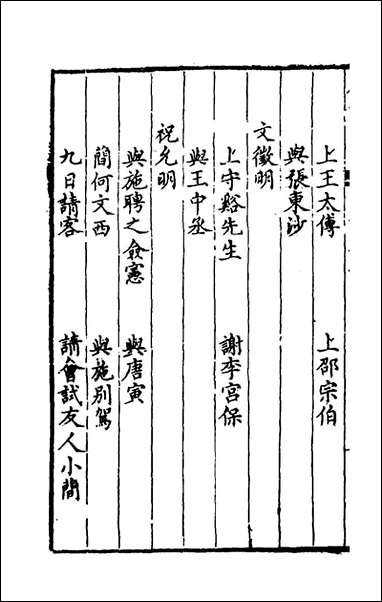 上王太傅　上邵宗伯
與張東沙
文徵明
上守谿先生　謝李宮保
與王中丞
祝允明
與施聘之僉憲　與唐寅
簡何文西　與施別駕
九日請客　請會試友人小簡